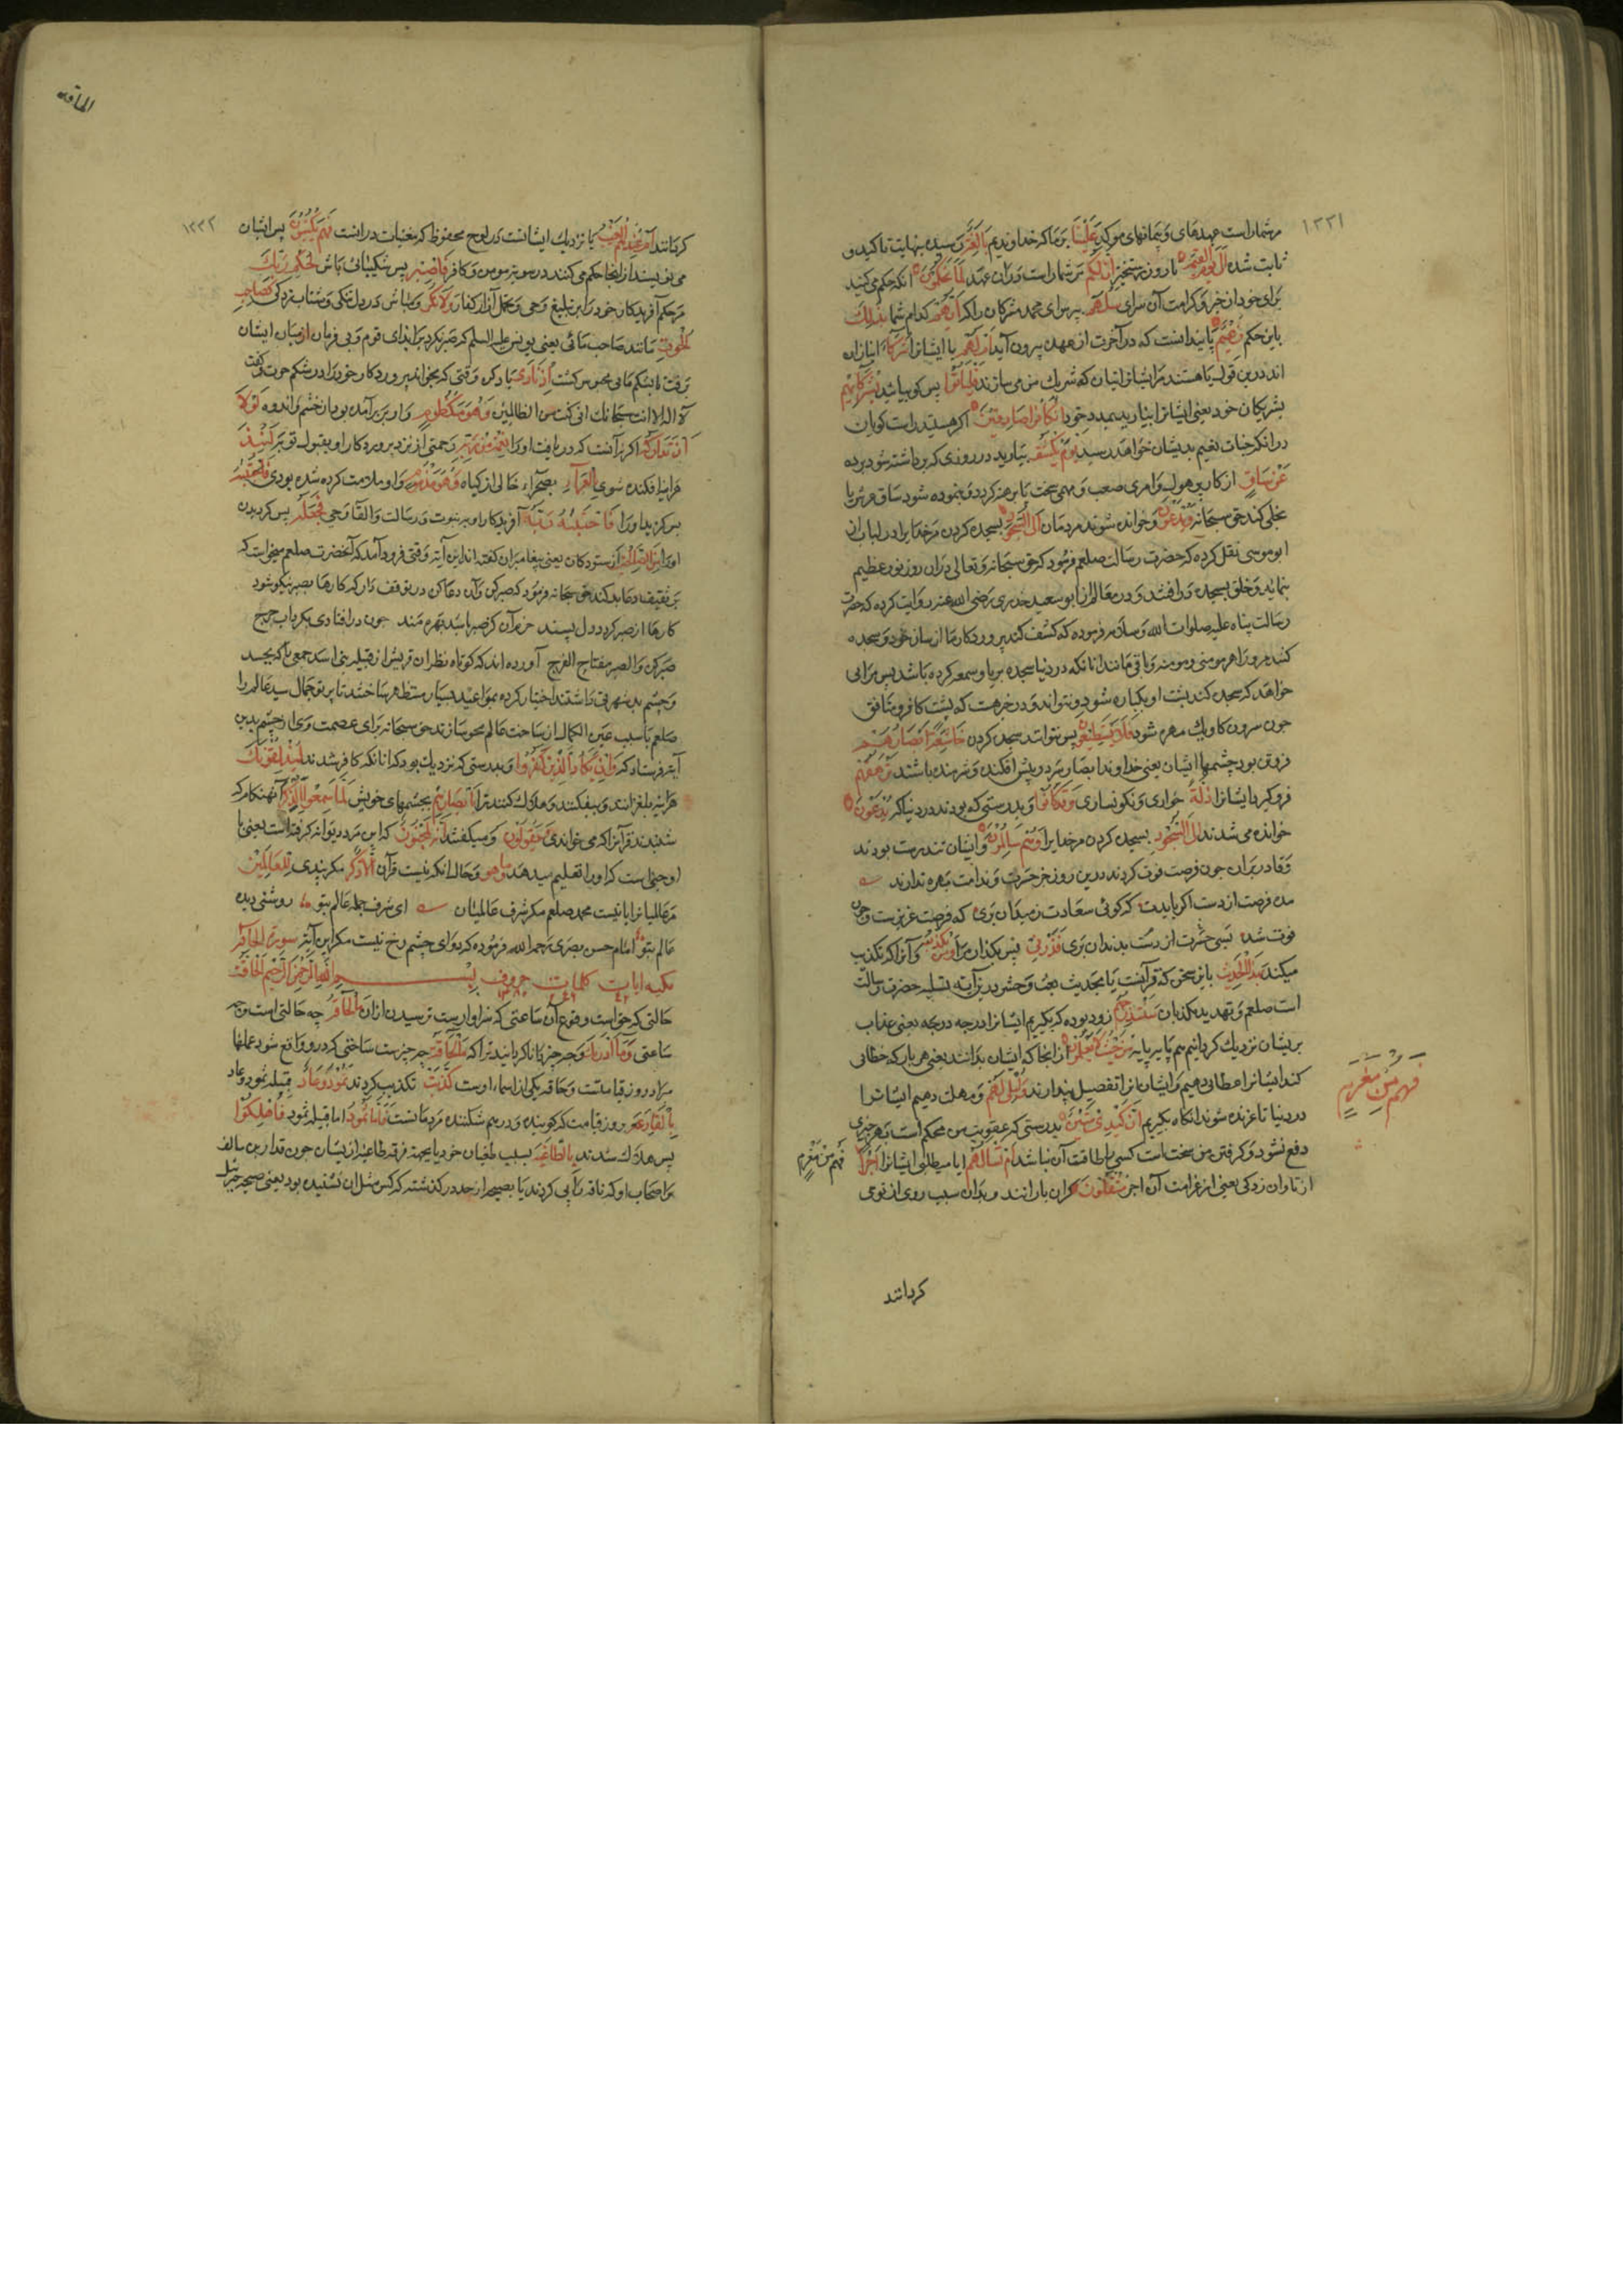 ١٢٣١
مرشماراست عهدهای و پیمانهای موکد علینا بر ما که خداوندیم بالغة رسیده بنهایت تاکید و
ثابت شده الی یوم القیمة تا روز رستخیز ان لکم مرشماراست دران عهد لما تحکمون انکه حکم می کنید
برای خود از خیر و کرامت آن سرای سلهم بپرس ای محمد مشرکان را که ایهم کدام شما بذلک
باین حکم زعیم پایندانست که در آخرت از عهده بیرون آید ام لهم یا ایشانرا شرکاء انبازان
اند درین قول یا هستند مرایشانرا بتان که شریک من می سازند فلیاتوا پس کو بیایید بشرکائهم
بشریکان خود یعنی ایشانرا بیارید بمدد خود ان کانوا صادقین اگر هستید راست گویان
درانکه جنات نعیم بدیشان خواهد رسید یوم یکشف بیاورید در روزی که برداشته شود پرده
عن ساق از کار پر هول و امری صعب و مهمی سخت یا برهنه گردد و نموده شود ساق عرش یا
تجلی کند حق سبحانه ویدعون و خوانده شوند مردمان الی السجود بسجده کردن مر خدایرا در لباب از
ابوموسی نقل کرده که حضرت رسالت صلعم فرمود که حق سبحانه و تعالی دران روز نور عظیم
بنماید و خلق بسجده درافتند و در معالم از ابو سعید خدری رضی الله عنه روایت کرده که حضرت
رسالت پناه علیه صلوات الله و سلامه فرموده که کشف کند پروردگار ما از ساق خود و سجده
کند مرورا هر مومنی و مومنه و باقی مانند انانکه در دنیا سجده بریا و سمعه کرده باشد پس مرائی
خواهد که سجده کند پشت او یکپاره شود و نتواند و در خبرست که پشت کافر و منافق
چون سرون گاو یک مهره شود فلا یستطیعون پس نتوانند سجده کردن خاشعة ابصارهم
فروتن بود چشمهای ایشان یعنی خداوند ابصار سر در پیش افکنده و شرمنده باشند ترهقهم
فرو گیرد ایشانرا ذلة خواری و نگونساری وقد کانوا و بدرستی که بودند در دنیا که یدعون
خوانده می شدند الی السجود بسجده کردن مر خدایرا وهم سالمون و ایشان تندرست بودند
و قادر بران چون فرصت فوت کردند درین روز جز حسرت و ندامت بهره ندارند
مده فرصت از دست اگر بایدت که گوئی سعادت ز میدان بری که فرصت عزیزست و چون
فوت شد بسی حسرت از دست بدندان بری فذرنی پس بگذار مرا ومن یکذب و آنرا که تکذیب
میکند بهذا الحدیث باین سخن که قرآنست یا بحدیث بعث و حشر بدین آیه تسلیه حضرت رسالت
است صلعم و تهدید مکذبان سنستدرجهم زود بوده که بگیریم ایشانرا درجه درجه یعنی عذاب
بریشان نزدیک گردانیم هم پایه پایه من حیث لا یعلمون از انجا که ایشان بدانند یعنی هر بار که خطائی
کنند ایشانرا عطائی دهیم و ایشان انرا تفضیل پندارند واملی لهم و مهلت دهیم ایشانرا
فهم من مغرم
در دنیا تا غرنده شوند انکاه بگیریم ان کیدی متین بدرستی که عقوبت من محکم است بهر چیزی
دفع نشود و گرفتن من سخت است کسی را طاقت آن نباشد ام تسالهم ایا میطلبی ایشانرا اجرا فهم من مغرم
از تاوان زدگی یعنی از غرامت آن اجر مثقلون گران بارانند و بدان سبب روی از تو می
کردانند
الحاقه
١٢٣٢
گردانند ام عندهم الغیب یا نزدیک ایشانست در لوح محفوظ که مغیبات درانست فهم یکتبون پس ایشان
می نویسند از انجا حکم می کنند در سویت مومن و کافر فاصبر پس شکیبائی باش لحکم ربک
مر حکم آفریدگار خود را در تبلیغ وحی و تحمل آزار کفار ولا تکن و مباش در دل تنگی و شتاب زدگی کصاحب
الحوت مانند صاحب ماهی یعنی یونس علیه السلم که صبر نکرد بر ایذای قوم و بی فرمان از میان ایشان
برفت تا بشکم ماهی محبوس گشت اذ نادی یاد کن وقتی که بخواند پروردگار خود را در شکم حوت و گفت
لا اله الا انت سبحانک انی کنت من الظالمین وهو مکظوم و او پر برآمده بود از خشم و اندوه لولا
ان تدارکه اگر نه آنست که دریافت او را نعمة من ربه رحمتی از نزد پروردگار او بقبول توبه لنبذ
هراینه افکنده شوی بالعراء بصحراء خالی از گیاه وهو مذموم و او ملامت کرده شده بودی فاجتبیه
پس برگزید اورا فاجتبیه ربه آفریدگار او به نبوت و رسالت و القاء وحی فجعله پس گردیدن
اورا من الصالحین از ستودگان یعنی پیغامبران گفته اند این آیه وقتی فرود آمد که آنحضرت صلعم میخواست که
بر ثقیف دعای بد کند حق سبحانه فرمود که صبر کن و آن دعا کن در توقف دار که کارها بصبر نیکو شود
کارها از صبر گردد دل پسند خرم آن کز صبر باشد بهره مند چون درافتادی بکرداب حرج
صبر کن والصبر مفتاح الفرج آورده اند که کوتاه نظران قریش از قبیله بنی اسد جمعی را که بحسد
و چشم بد شهرتی داشتند اختیار کرده بمواعید بسیار مستظهر ساختند تا پرتو جمال سید عالم را
صلعم باسیب عین الکمال از ساحت عالم محو سازند حق سبحانه برای عصمت وی از چشم بد این
آیه فرستاد که وان یکاد الذین کفروا و بدرستی که نزدیک بود که انانکه کافر شدند لیزلقونک
هراینه بلغزانند و بیفکنند و هلاک کنند ترا بابصارهم بچشمهای خویش لما سمعوا الذکر آنهنگام که
شنیدند قرآنرا که می خواندی ویقولون و میگفتند انه لمجنون که این مرد دیوانه گرفته است یعنی با
او جنی است که او را تعلیم میدهد وما هو و حال انکه نیست قرآن الا ذکر مگر پندی للعالمین
مر عالمیانرا یا نیست محمد صلعم مگر شرف عالمیان ای شرف جمله عالم بتو روشنی دیده
عالم بتو امام حسن بصری رحمه الله فرموده که دوای چشم زخ نیست مگر این آیة سورة الحاقة
مکیه ایات کلمات حروف بسم الله الرحمن الرحیم الحاقة
حالتی که حق است وقوع آن ساعتی که سزاوارست ترسیدن ازان ما الحاقة چه حالتی است و چه
ساعتی وما ادریک و چه چیز دانا گردانید ترا که ما الحاقة چه چیزست ساختی که درو واقع شود عملها
مراد روز قیامتست و حاقه یکی از اسماء اوست کذبت تکذیب کردند ثمود وعاد قبیله ثمود و عاد
بالقارعة بروز قیامت که کوبنده و درهم شکننده مردمانست فاما ثمود اما قبیله ثمود فاهلکوا
پس هلاک شدند بالطاغیة بسبب طغیان خود یا بجهة فرقه طاغیه از یشان چون قدار بن سالف
و اصحاب او که ناقه را پی کردند یا بصیحه از حد درگذشته که کس مثل ان نشنیده بود یعنی صیحه جبرئیل